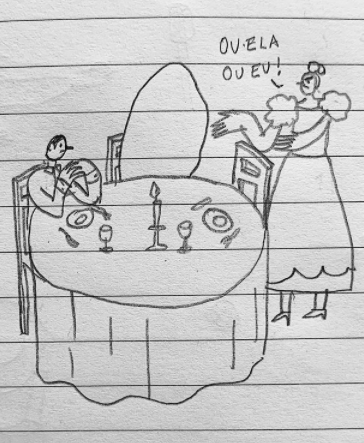 OU·ELA
OU EU!